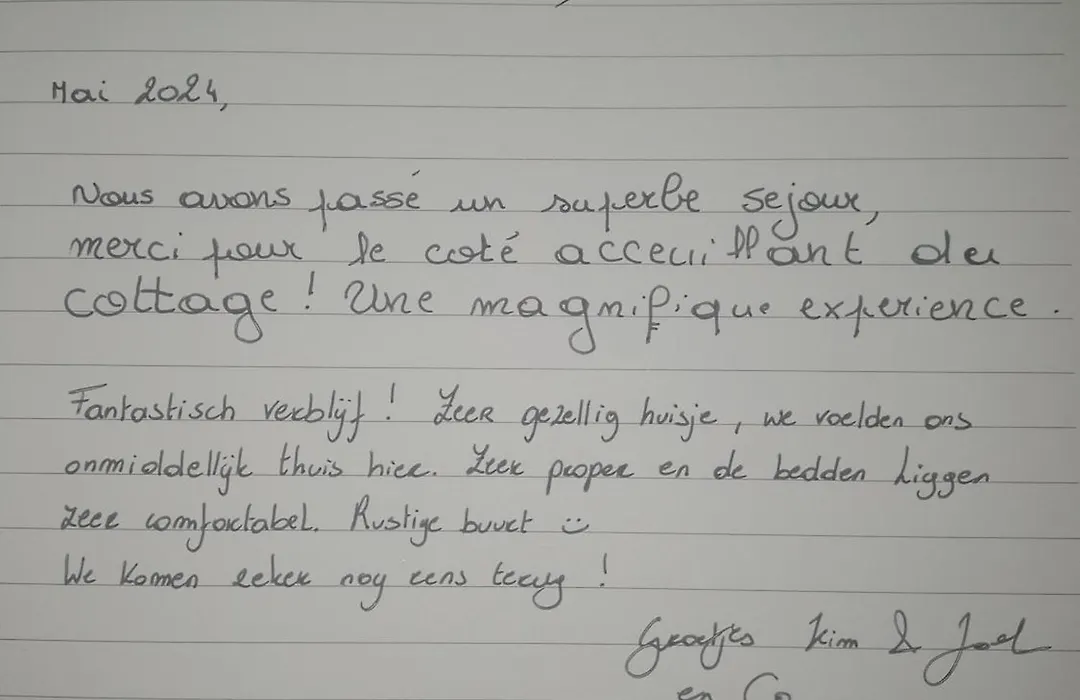 Mai 2024,
Nous avons passé un superbe sejour,
merci pour le coté acceuillant du
cottage ! Une magnifique experience.
Fantastisch verblijf ! Zeer gezellig huisje, we voelden ons
onmiddellijk thuis hier. Zeer proper en de bedden liggen
zeer comfortabel. Rustige buurt ☺
We komen zeker nog eens terug !
Groetjes Kim & Joel
en